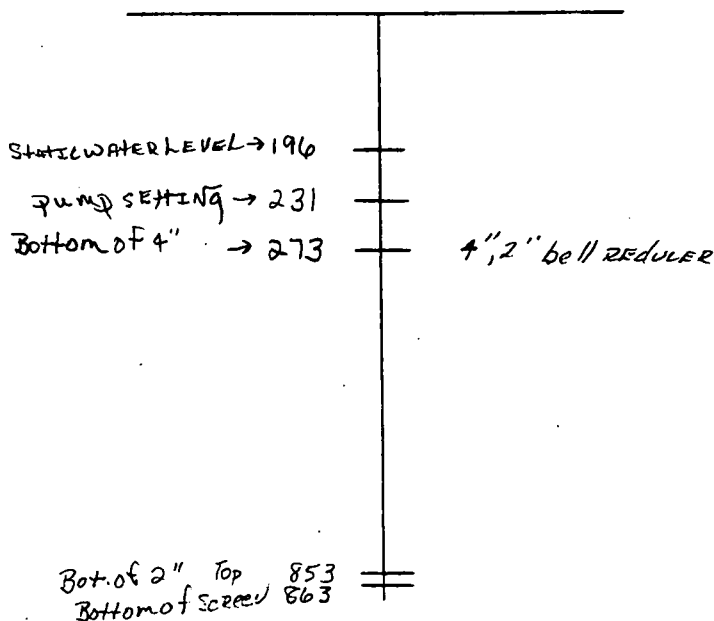 Static water level → 196
pump setting → 231
Bottom of 4" → 273
4", 2" bell reducer
Bot. of 2" Top 853
Bottom of screen 863